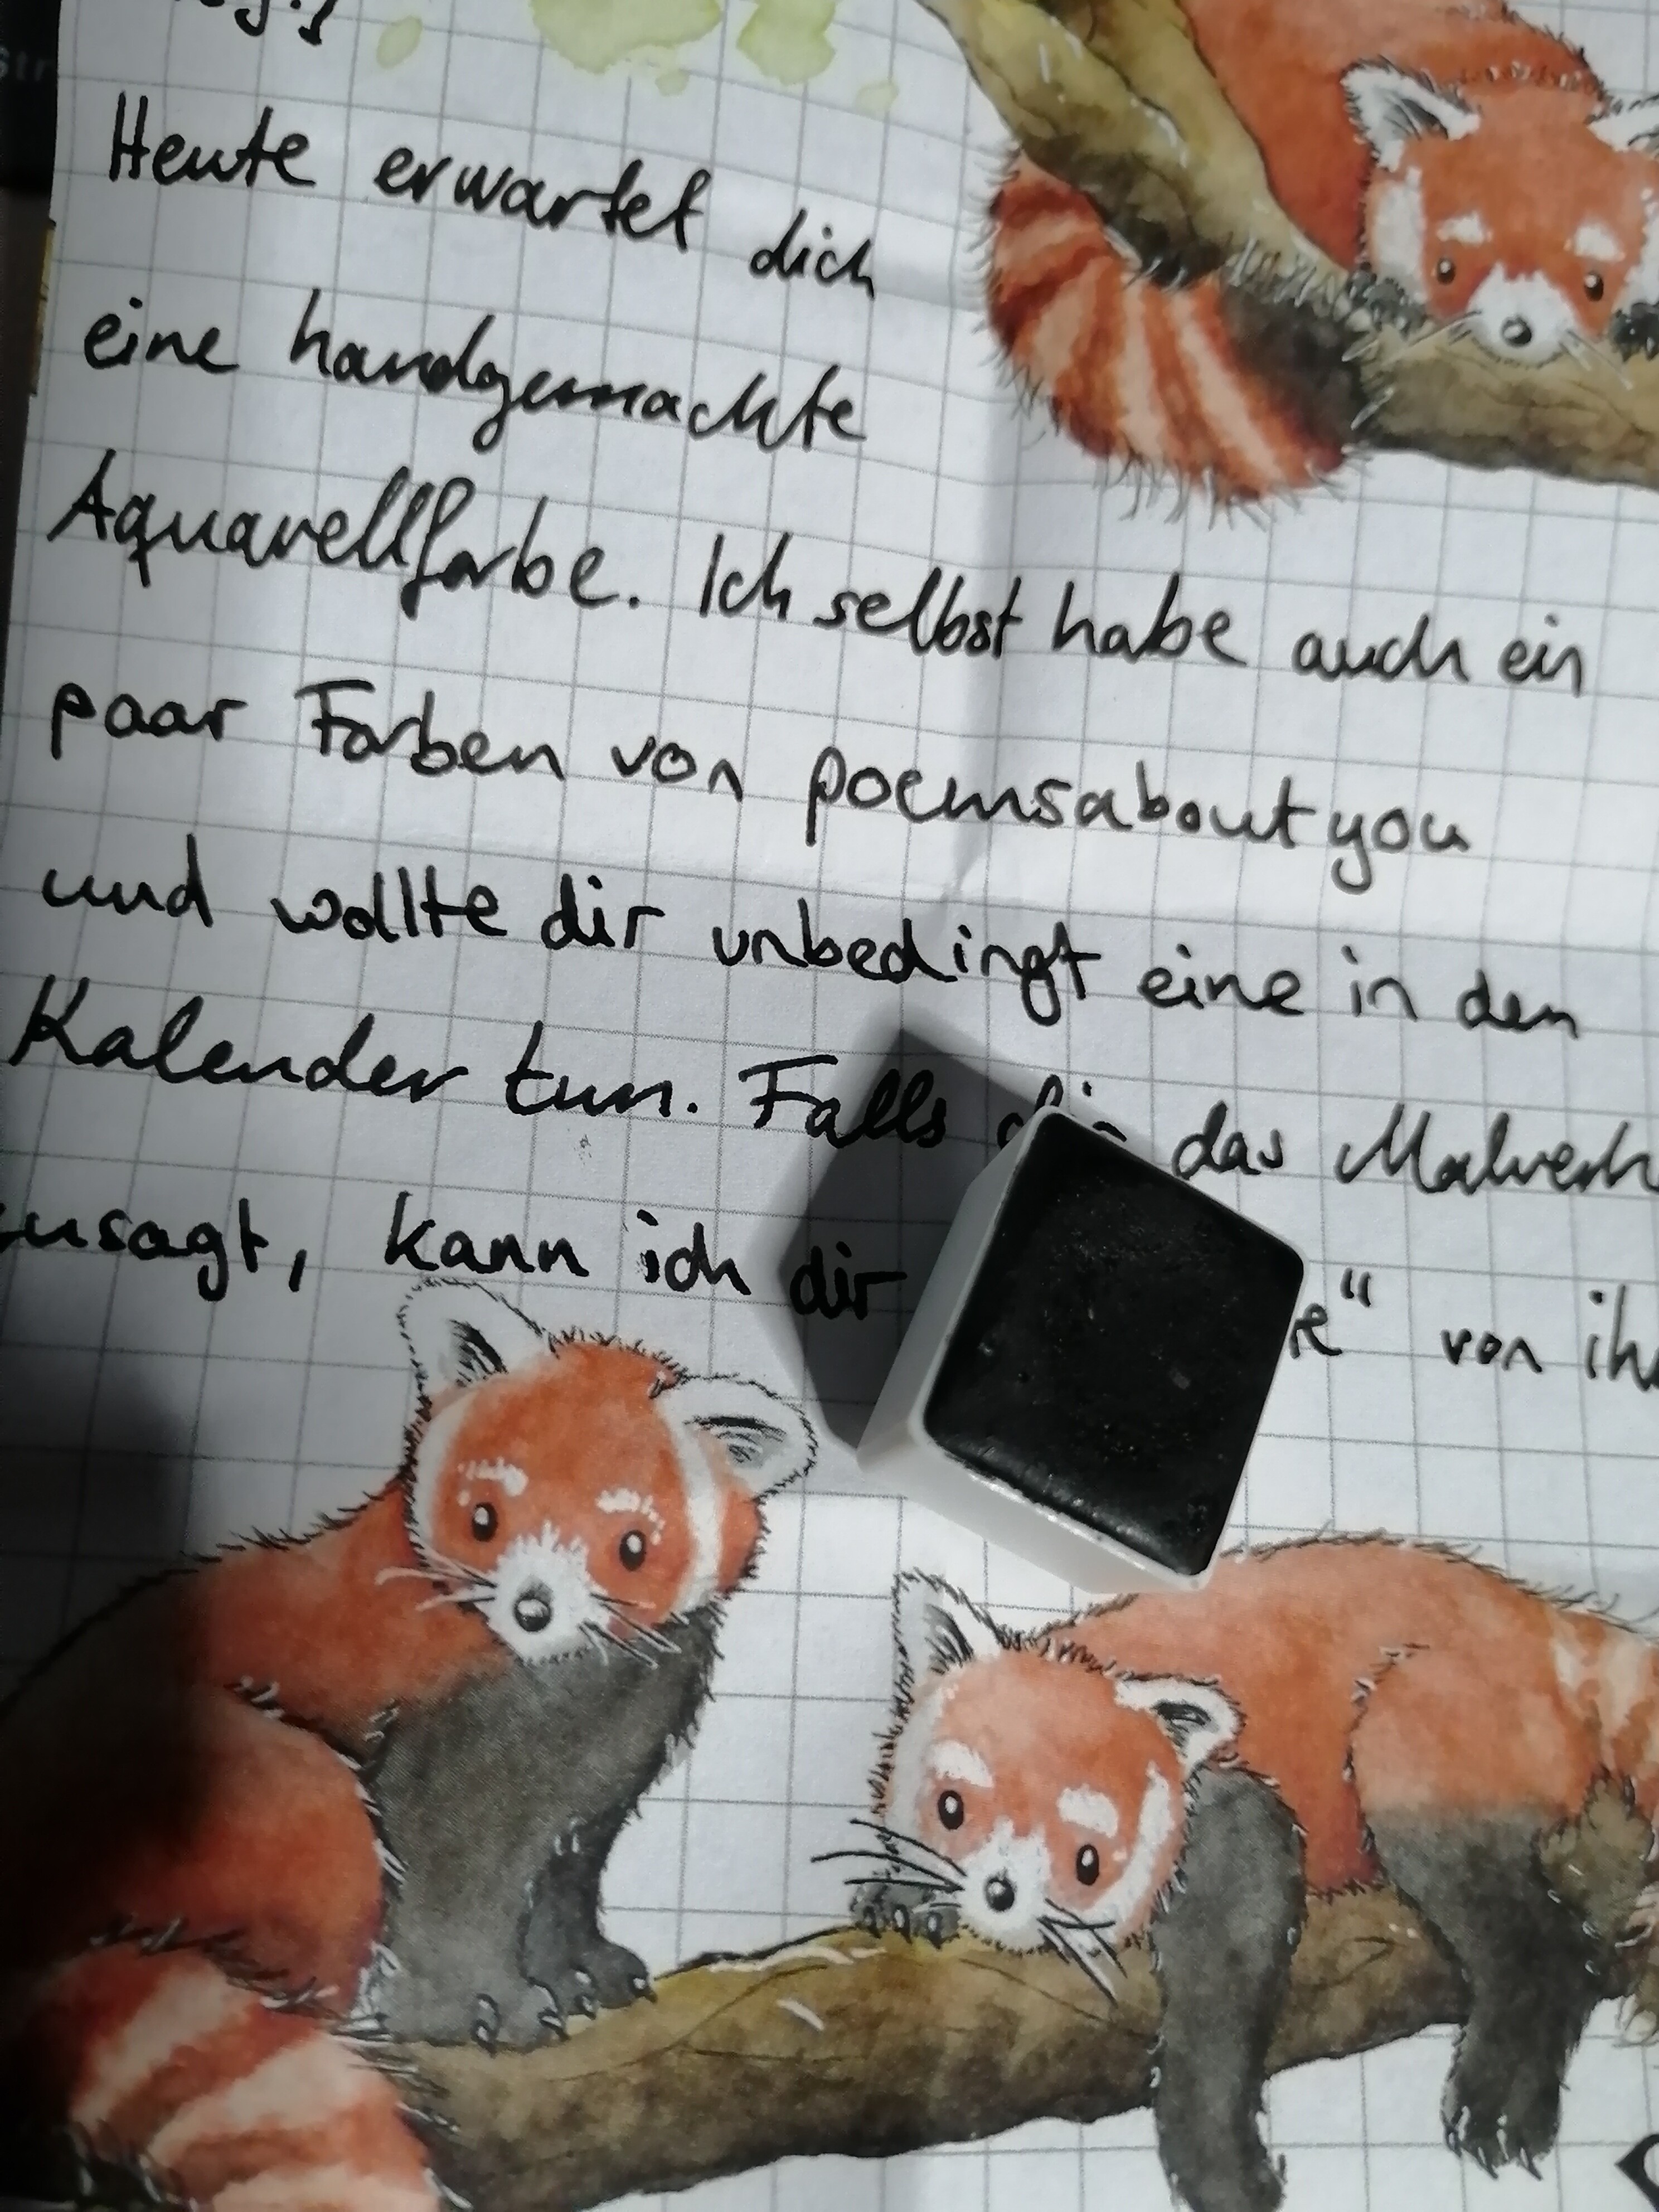 Heute erwartet dich
eine handgemachte
Aquarellfarbe. Ich selbst habe auch ein
paar Farben von poemsaboutyou
und wollte dir unbedingt eine in den
Kalender tun. Falls das
zusagt, kann ich dir von